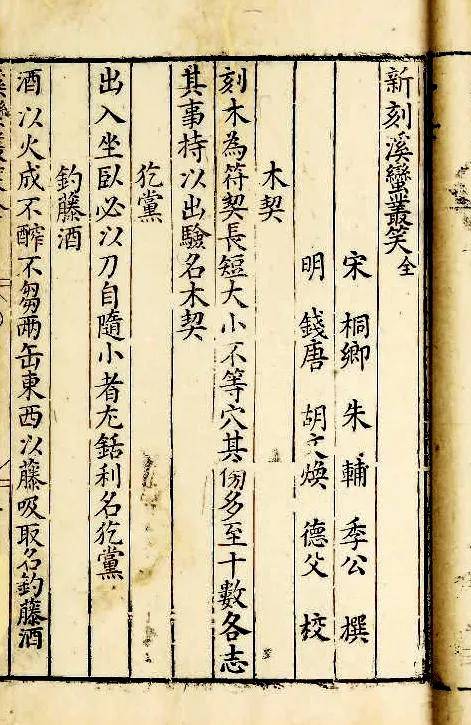 新刻溪蠻叢笑全
宋桐鄉朱輔季公撰
明錢唐胡文煥德父校
木契
刻木為符契長短大小不等穴其傍多至十數各志
其事持以出驗名木契
犵黨
出入坐臥必以刀自隨小者尤銛利名犵黨
釣藤酒
酒以火成不醡不芻兩缶東西以藤吸取名釣藤酒